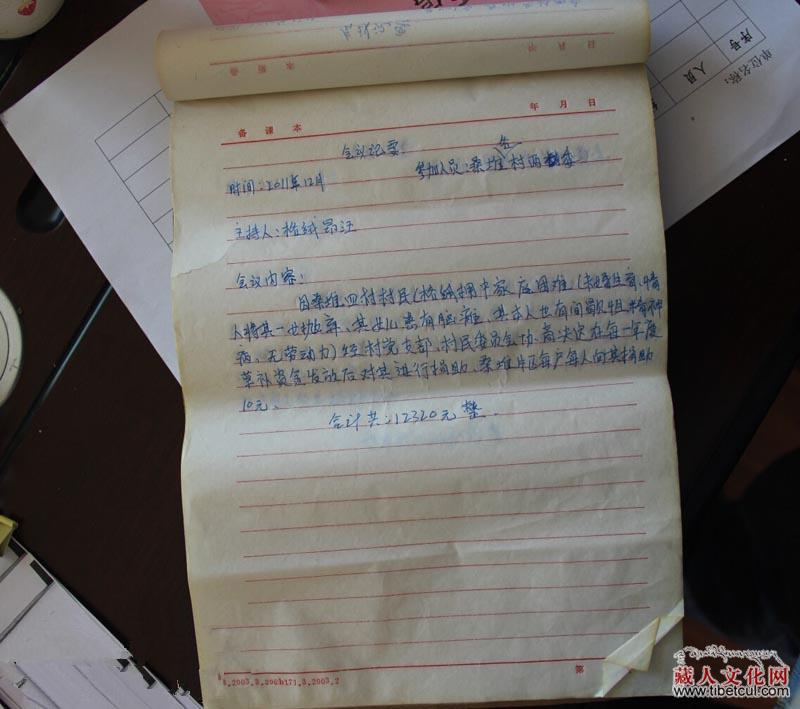 单位名称:
序号
人员
备课本
年 月 日
会议记要
时间:2011年12月
参加人员:桑堆各村两委
主持人:格绒昂汪
会议内容:
因桑堆四村村民(格绒拥中家庭困难(未婚生育,
人将其一世抛弃、其女儿患有脑瘫、其本人也有间歇
病,无劳动力)经村党支部、村民委员会协商决定在每一年度
草补资金发放后对其进行捐助、桑堆片区每户每人向其捐助
10元、
合计共:12320元整.
第
藏人文化网
www.tibetcul.com